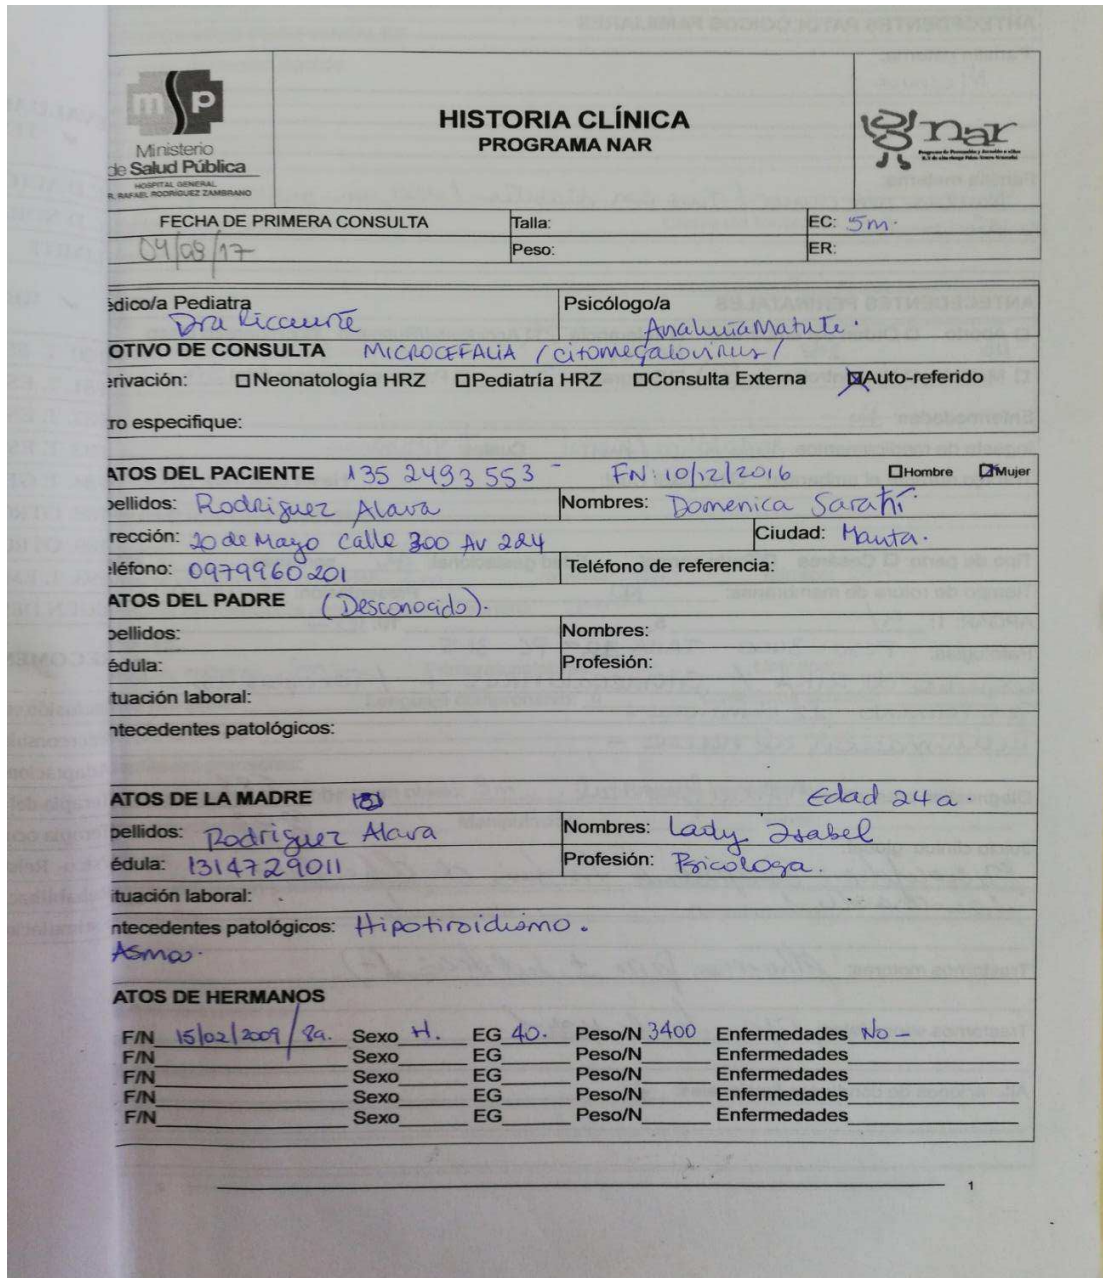 msp
Ministerio
de Salud Pública
HOSPITAL GENERAL
R. RAFAEL RODRÍGUEZ ZAMBRANO
HISTORIA CLÍNICA
PROGRAMA NAR
nar
FECHA DE PRIMERA CONSULTA Talla: EC: 5m.
04/08/17 Peso: ER:
édico/a Pediatra Psicólogo/a
Dra Ricaurte Analuiia Matute.
OTIVO DE CONSULTA MICROCEFALIA /citomegalovirus/
erivación: ☐Neonatología HRZ ☐Pediatría HRZ ☐Consulta Externa ☒Auto-referido
ro especifique:
ATOS DEL PACIENTE 135 2493 553 - FN: 10/12/2016 ☐Hombre ☒Mujer
pellidos: Rodriguez Alava Nombres: Domenica Sarahí
rección: 20 de Mayo Calle 300 Av 224 Ciudad: Manta.
léfono: 0979960201 Teléfono de referencia:
ATOS DEL PADRE (Desconocido).
pellidos: Nombres:
édula: Profesión:
tuación laboral:
ntecedentes patológicos:
ATOS DE LA MADRE Edad 24a
pellidos: Rodriguez Alava Nombres: Lady Isabel
édula: 1314729011 Profesión: Psicologa.
tuación laboral:
ntecedentes patológicos: Hipotiroidismo.
Asma.
ATOS DE HERMANOS
F/N 15/02/2009/8a. Sexo H. EG 40. Peso/N 3400 Enfermedades No -
F/N Sexo EG Peso/N Enfermedades
F/N Sexo EG Peso/N Enfermedades
F/N Sexo EG Peso/N Enfermedades
F/N Sexo EG Peso/N Enfermedades
1